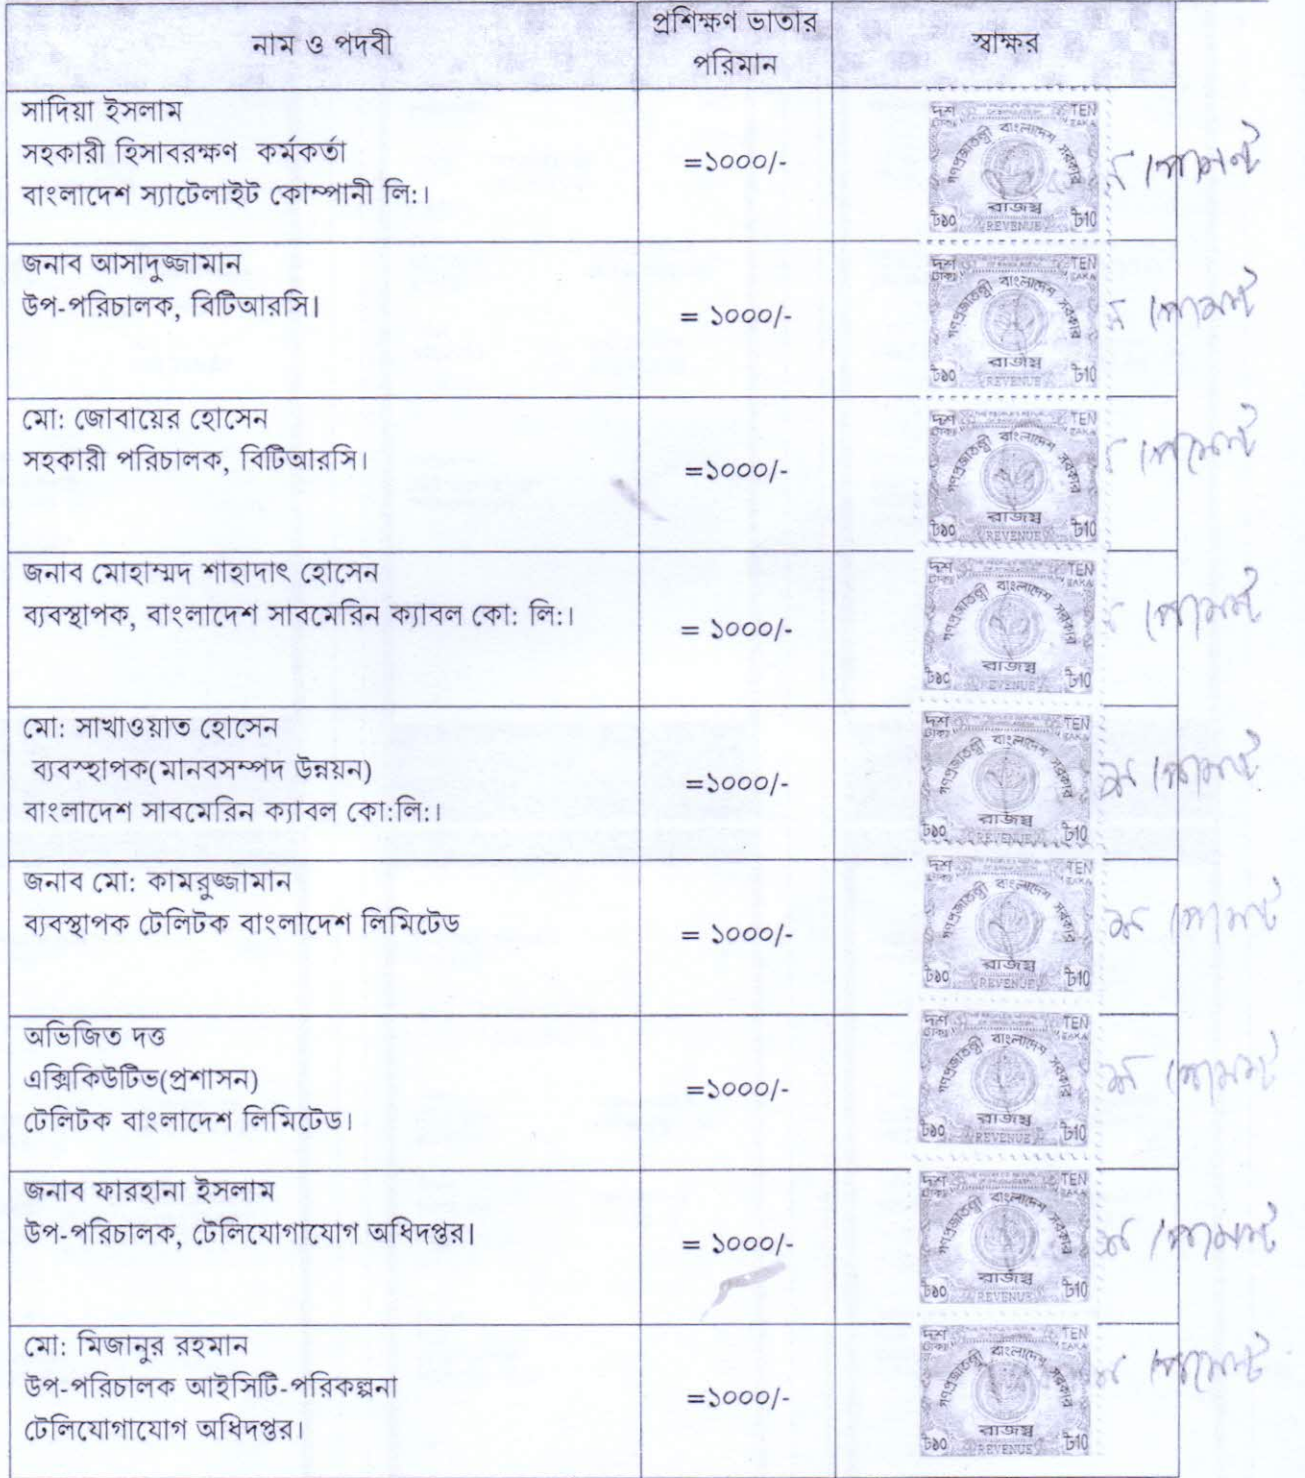 নাম ও পদবী
প্রশিক্ষণ ভাতার
পরিমান
স্বাক্ষর
সাদিয়া ইসলাম
সহকারী হিসাবরক্ষণ কর্মকর্তা
বাংলাদেশ স্যাটেলাইট কোম্পানী লি:।
=১০০০/-
দশ টাকা TEN TAKA
গণপ্রজাতন্ত্রী বাংলাদেশ সরকার
রাজস্ব
৳১০ REVENUE ৳10
জনাব আসাদুজ্জামান
উপ-পরিচালক, বিটিআরসি।
= ১০০০/-
দশ টাকা TEN TAKA
গণপ্রজাতন্ত্রী বাংলাদেশ সরকার
রাজস্ব
৳১০ REVENUE ৳10
মো: জোবায়ের হোসেন
সহকারী পরিচালক, বিটিআরসি।
=১০০০/-
দশ টাকা TEN TAKA
গণপ্রজাতন্ত্রী বাংলাদেশ সরকার
রাজস্ব
৳১০ REVENUE ৳10
জনাব মোহাম্মদ শাহাদাৎ হোসেন
ব্যবস্থাপক, বাংলাদেশ সাবমেরিন ক্যাবল কো: লি:।
= ১০০০/-
দশ টাকা TEN TAKA
গণপ্রজাতন্ত্রী বাংলাদেশ সরকার
রাজস্ব
৳১০ REVENUE ৳10
মো: সাখাওয়াত হোসেন
ব্যবস্হাপক(মানবসম্পদ উন্নয়ন)
বাংলাদেশ সাবমেরিন ক্যাবল কো:লি:।
=১০০০/-
দশ টাকা TEN TAKA
গণপ্রজাতন্ত্রী বাংলাদেশ সরকার
রাজস্ব
৳১০ REVENUE ৳10
জনাব মো: কামরুজ্জামান
ব্যবস্থাপক টেলিটক বাংলাদেশ লিমিটেড
= ১০০০/-
দশ টাকা TEN TAKA
গণপ্রজাতন্ত্রী বাংলাদেশ সরকার
রাজস্ব
৳১০ REVENUE ৳10
অভিজিত দত্ত
এক্সিকিউটিভ(প্রশাসন)
টেলিটক বাংলাদেশ লিমিটেড।
=১০০০/-
দশ টাকা TEN TAKA
গণপ্রজাতন্ত্রী বাংলাদেশ সরকার
রাজস্ব
৳১০ REVENUE ৳10
জনাব ফারহানা ইসলাম
উপ-পরিচালক, টেলিযোগাযোগ অধিদপ্তর।
= ১০০০/-
দশ টাকা TEN TAKA
গণপ্রজাতন্ত্রী বাংলাদেশ সরকার
রাজস্ব
৳১০ REVENUE ৳10
মো: মিজানুর রহমান
উপ-পরিচালক আইসিটি-পরিকল্পনা
টেলিযোগাযোগ অধিদপ্তর।
=১০০০/-
দশ টাকা TEN TAKA
গণপ্রজাতন্ত্রী বাংলাদেশ সরকার
রাজস্ব
৳১০ REVENUE ৳10